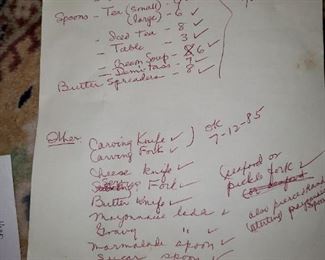 Spoons - Tea (small) -
(large) - 6 ✓
- Iced Tea - 8 ✓
- Table 3 ✓
- Cream Soup 6 ✓
- Demi tass - 7 ✓
Butter Spreaders - 8 ✓
Other:
Carving Knife ✓
Carving Fork ✓
OK
7-12-85
Cheese knife ✓
Serving Fork ✓
Butter Knife ✓
Mayonnaise ladle ✓
Gravy " ✓
Marmalade spoon ✓
Sugar spoon ✓
seafood or
pickle fork ✓
also pierced
spoon